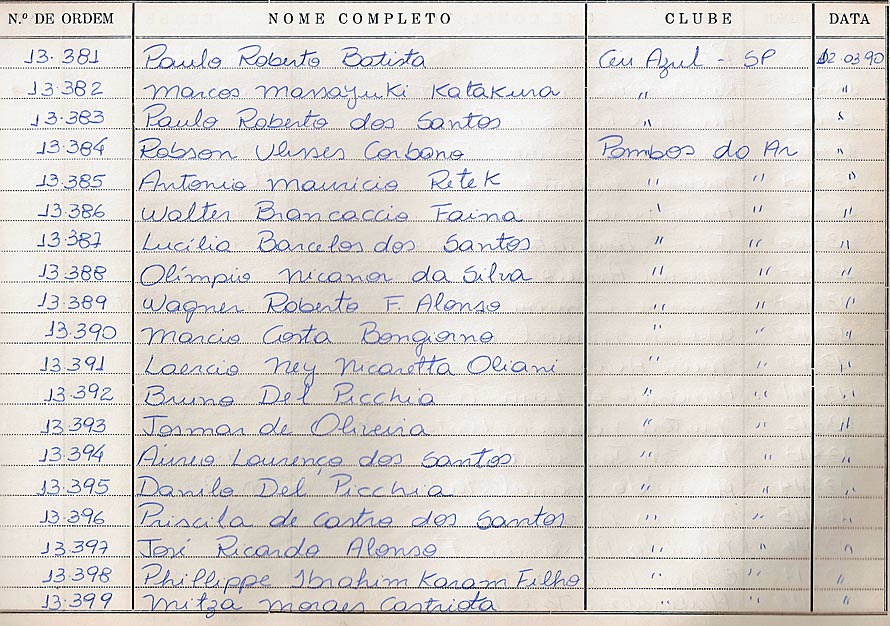 N.º DE ORDEM NOME COMPLETO CLUBE DATA
13.381 Paulo Roberto Batista Céu Azul - SP 12.03.90
13.382 Marcos Massayuki Katakura " "
13.383 Paulo Roberto dos Santos " "
13.384 Robson Ulisses Corbano Pombos do Ar "
13.385 Antonio Mauricio Retek " " "
13.386 Walter Brancaccio Faina " " "
13.387 Lucília Barcelos dos Santos " " "
13.388 Olímpio Nicanor da Silva " " "
13.389 Wagner Roberto F. Alonso " " "
13.390 Marcio Costa Bongiorno " " "
13.391 Laercio Ney Nicaretta Oliani " " "
13.392 Bruno Del Picchia " " "
13.393 Josmar de Oliveira " " "
13.394 Áureo Lourenço dos Santos " " "
13.395 Danilo Del Picchia " " "
13.396 Priscila de Castro dos Santos " " "
13.397 José Ricardo Alonso " " "
13.398 Phillippe Ibrahim Karam Filho " " "
13.399 Mitza Moraes Castriota " " "